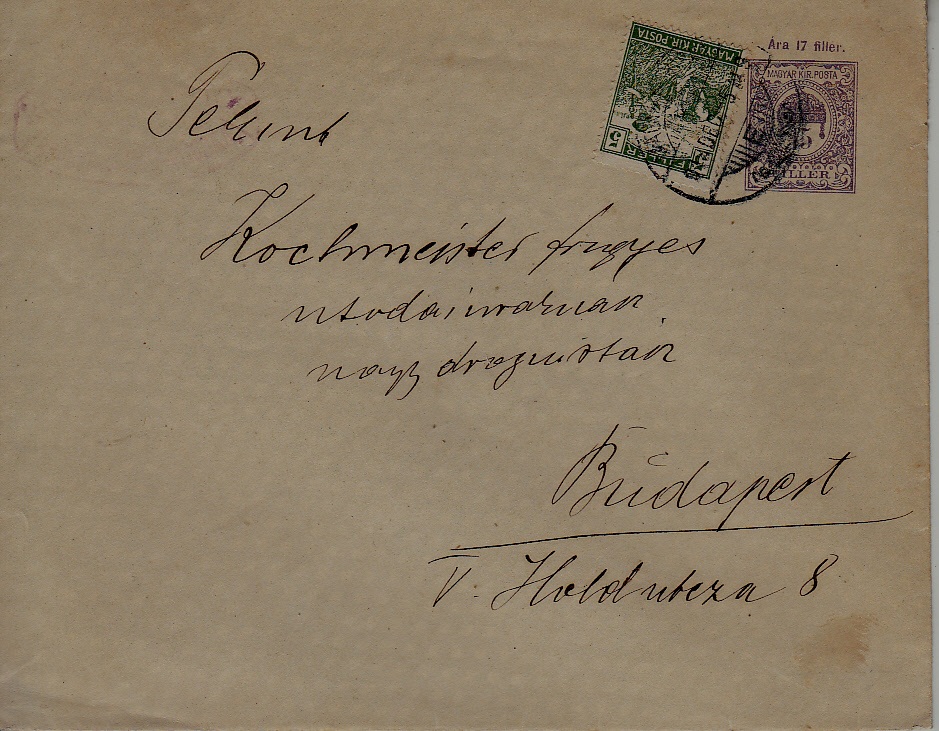 Ára 17 fillér.
MAGYAR KIR. POSTA
15
FILLER
MAGYAR KIR. POSTA
5 FILLER 5
Tekint
Kochmeister frigyes
utodai uraknak
nagy droguisták
Budapest
V. Hold utcza 8